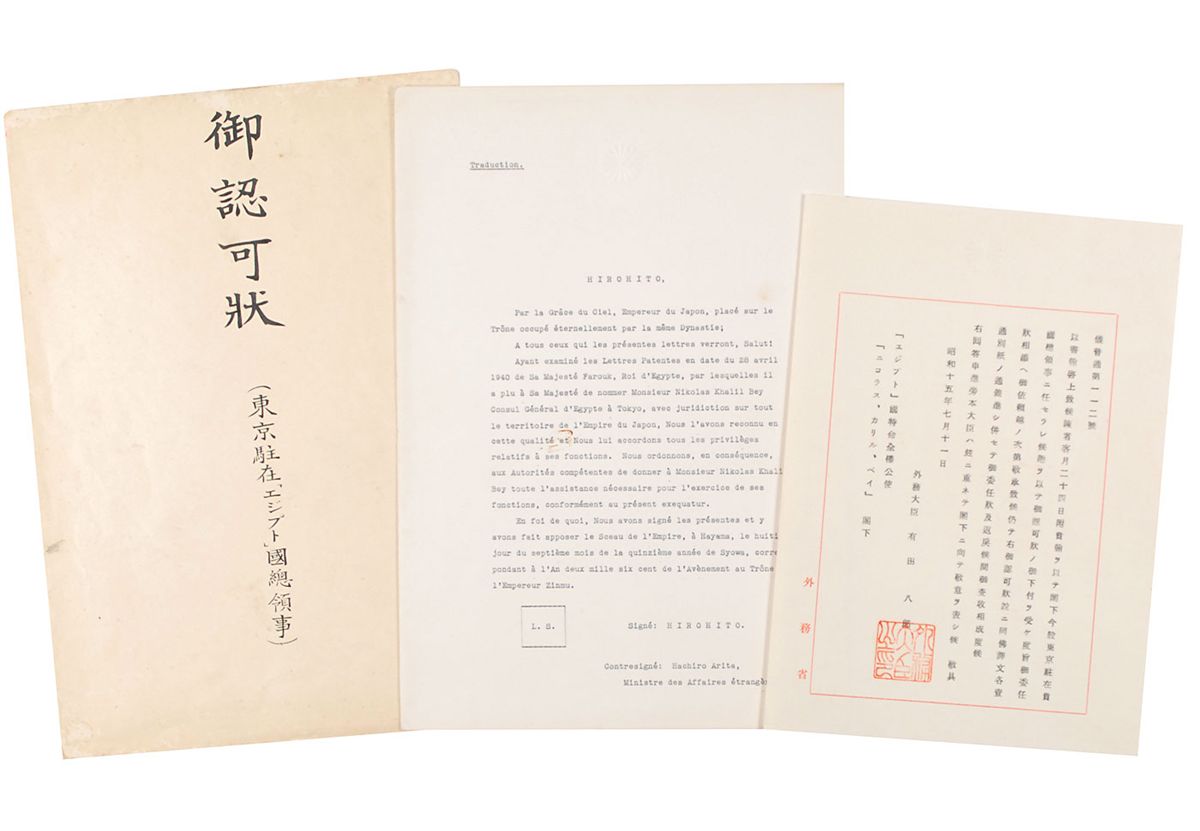 御認可狀
(東京駐在「エジプト」國總領事)
Traduction.
HIROHITO,
Par la Grâce du Ciel, Empereur du Japon, placé sur le
Trône occupé éternellement par la même Dynastie;
A tous ceux qui les présentes lettres verront, Salut!
Ayant examiné les Lettres Patentes en date du 28 avril
1940 de Sa Majesté Farouk, Roi d'Egypte, par lesquelles il
a plu à Sa Majesté de nommer Monsieur Nikolas Khalil Bey
Consul Général d'Egypte à Tokyo, avec juridiction sur tout
le territoire de l'Empire du Japon, Nous l'avons reconnu en
cette qualité et Nous lui accordons tous les privilèges
relatifs à ses fonctions. Nous ordonnons, en conséquence,
aux Autorités compétentes de donner à Monsieur Nikolas Khali
Bey toute l'assistance nécessaire pour l'exercice de ses
fonctions, conformément au présent exequatur.
En foi de quoi, Nous avons signé les présentes et y
avons fait apposer le Sceau de l'Empire, à Hayama, le huiti
jour du septième mois de la quinzième année de Syowa, corre
pondant à l'An deux mille six cent de l'Avènement au Trône
l'Empereur Zinmu.
L. S.
Signé: HIROHITO.
Contresigné: Hachiro Arita,
Ministre des Affaires étrangè
第一一二號
以書翰啓上致候陳者客月二十四日附貴翰ヲ以テ閣下今般東京駐在貴
國總領事ニ任セラレ候趣ヲ以テ御認可狀ノ御下付ヲ受ケ度旨御委任
狀相添ヘ御依賴越ノ次第敬承致候仍テ右御認可狀竝ニ同佛譯文各壹
通別紙ノ通茲進シ併セテ御委任狀及返戾候間御查收相成度候
右回答申進旁本大臣ハ玆ニ重ネテ閣下ニ向テ敬意ヲ表シ候 敬具
昭和十五年七月十一日
外務大臣 有田八
「エジプト」國特命全權公使
「ニコラス、カリル、ベイ」閣下
外務省